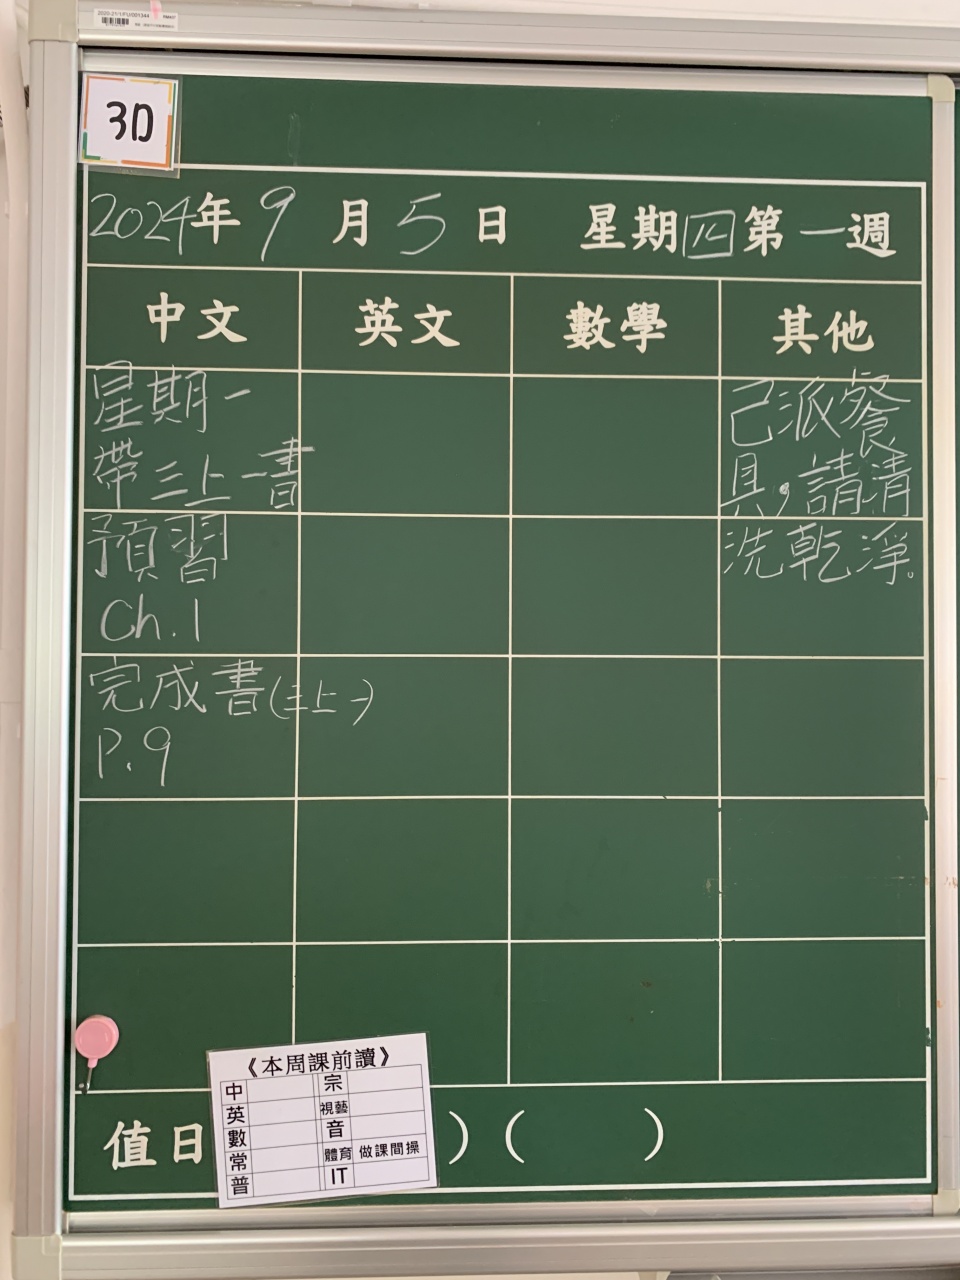 2020-21/1/FU/001344
3D
2024年9月5日 星期四第一週
中文 英文 數學 其他
星期一
帶三上一書
預習
Ch.1
完成書(三上一)
P.9
己派餐
具,請清
洗乾淨。
《本周課前讀》
中 宗
英 視藝
數 音
常 體育 做課間操
普 IT
值日 )( )